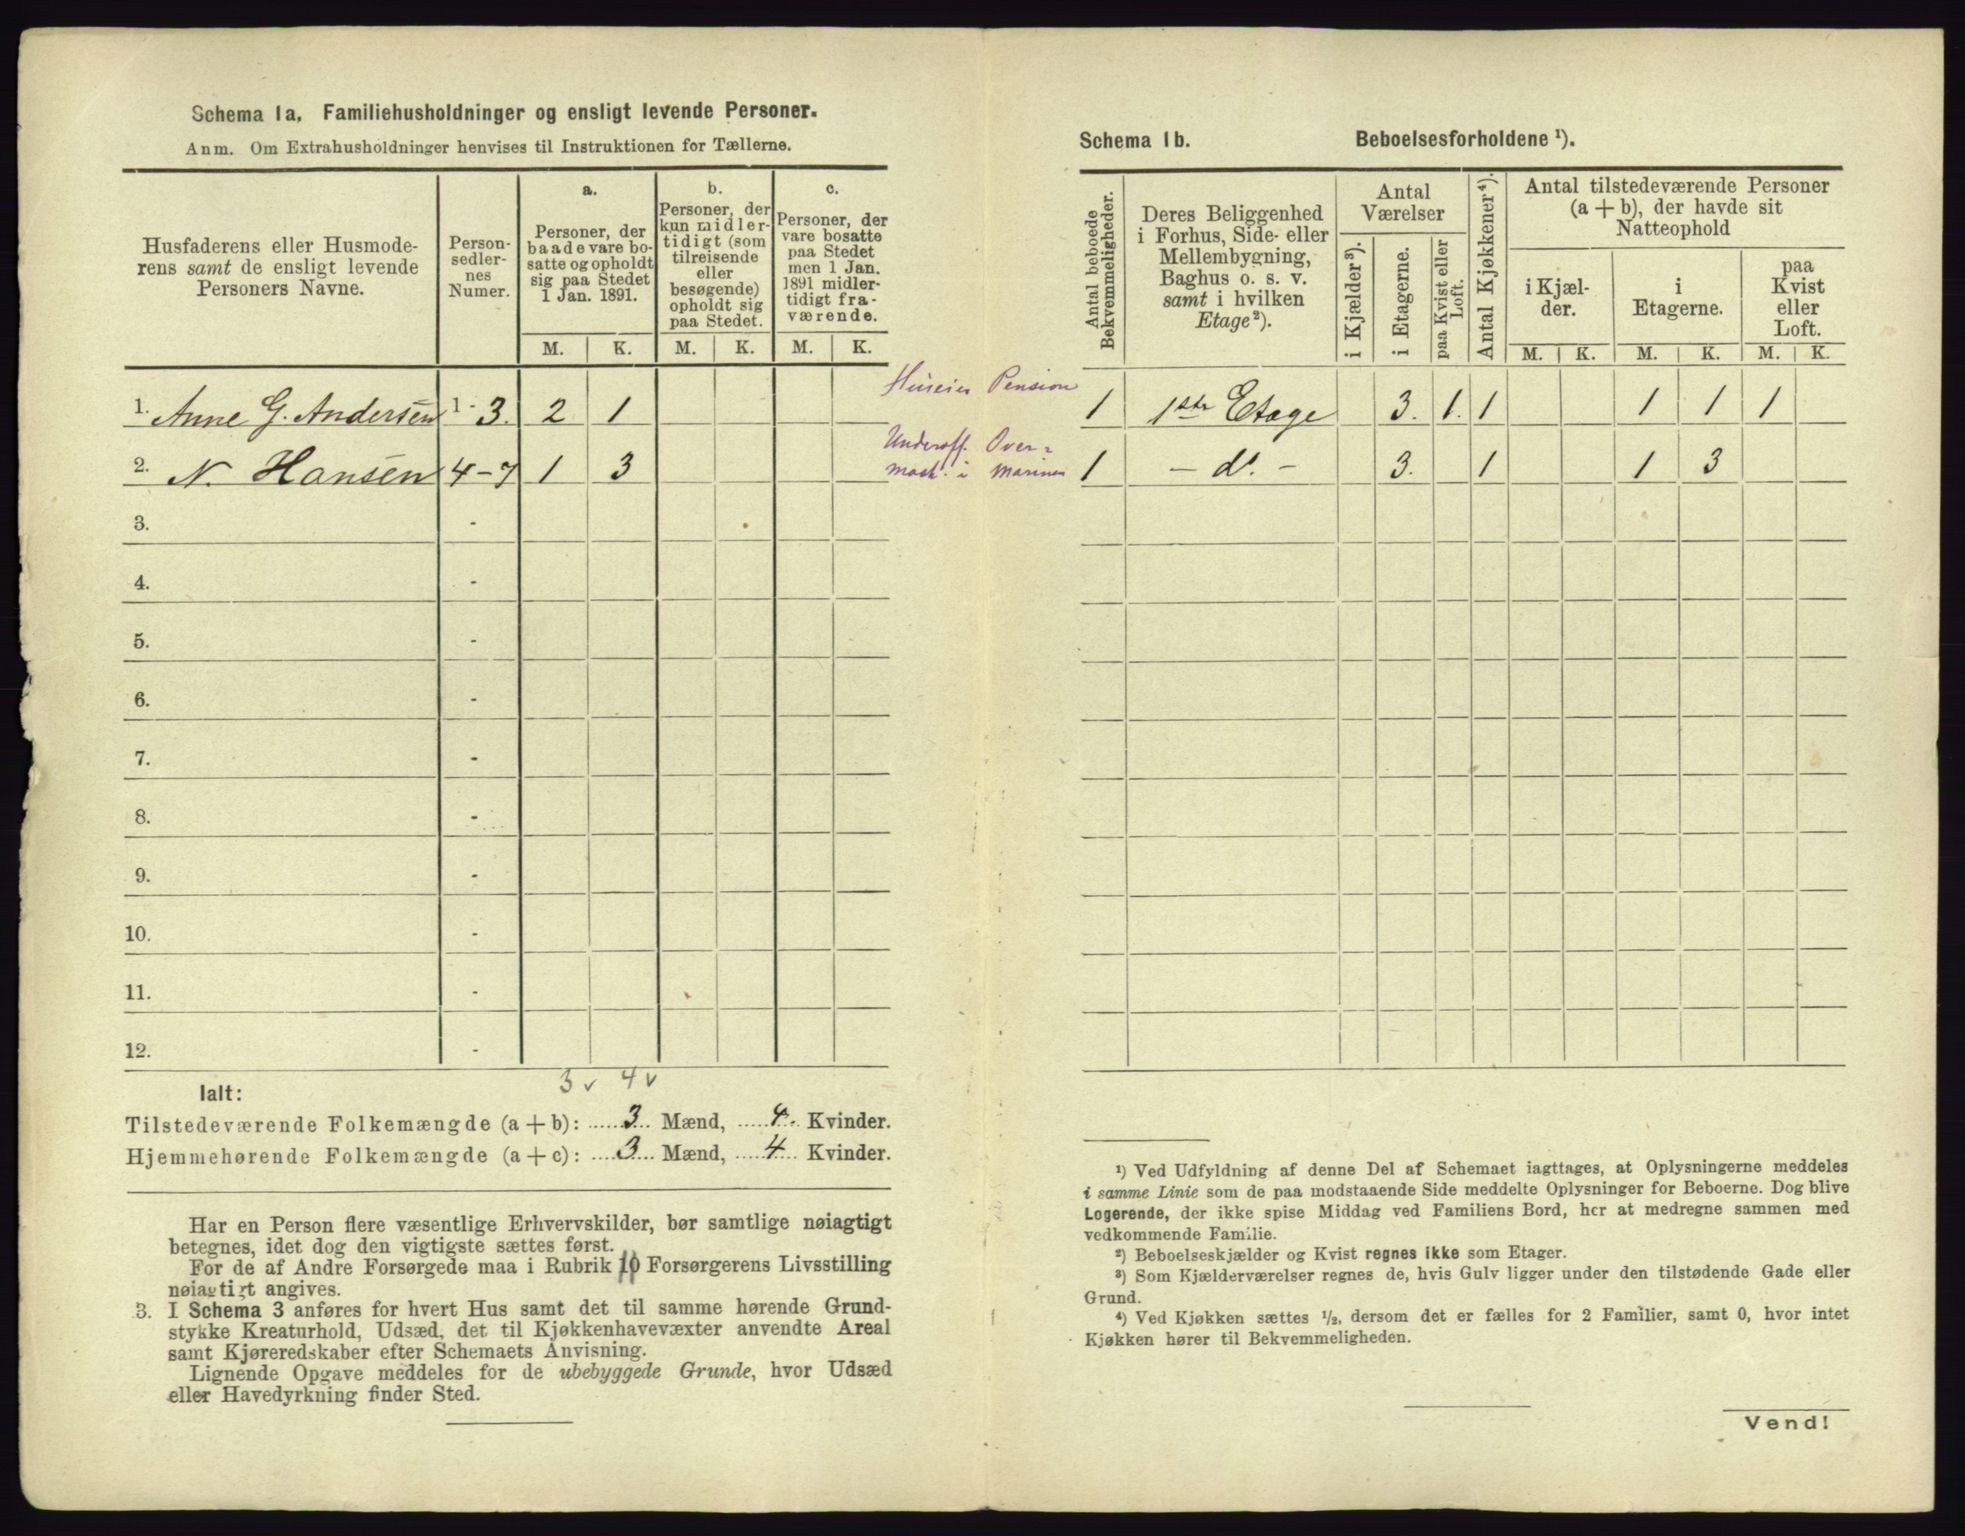 Schema 1a. Familiehusholdninger og ensligt levende Personer.
Anm. Om Extrahusholdninger henvises til Instruktionen for Tællerne.
Husfaderens eller Husmode-
rens samt de ensligt levende
Personers Navne.
Person-
sedler-
nes
Numer.
a.
Personer, der
baade vare bo-
satte og opholdt
sig paa Stedet
1 Jan. 1891.
b.
Personer, der
kun midler-
tidigt (som
tilreisende
eller
besøgende)
opholdt sig
paa Stedet.
c.
Personer, der
vare bosatte
paa Stedet
men 1 Jan.
1891 midler-
tidigt fra-
værende.
M. K. M. K. M. K.
1. Anne G. Andersen 1 - 3. 2 1
2. N. Hansen 4 - 7 1 3
3. -
4. -
5. -
6. -
7. -
8. -
9. -
10. -
11. -
12. -
3 v 4 v
Ialt:
Tilstedeværende Folkemængde (a + b): 3 Mænd, 4. Kvinder.
Hjemmehørende Folkemængde (a + c): 3 Mænd, 4 Kvinder.
Har en Person flere væsentlige Erhvervskilder, bør samtlige nøiagtigt
betegnes, idet dog den vigtigste sættes først.
For de af Andre Forsørgede maa i Rubrik 10 Forsørgerens Livsstilling
nøiagtigt angives.
3. I Schema 3 anføres for hvert Hus samt det til samme hørende Grund-
stykke Kreaturhold, Udsæd, det til Kjøkkenhavevæxter anvendte Areal
samt Kjøreredskaber efter Schemaets Anvisning.
Lignende Opgave meddeles for de ubebyggede Grunde, hvor Udsæd
eller Havedyrkning finder Sted.
Schema 1b. Beboelsesforholdene ¹).
Antal beboede
Bekvemmeligheder.
Deres Beliggenhed
i Forhus, Side- eller
Mellembygning,
Baghus o. s. v.
samt i hvilken
Etage²).
Antal
Værelser
i Kjælder³).
i Etagerne.
paa Kvist eller
Loft.
Antal Kjøkkener⁴).
Antal tilstedeværende Personer
(a + b), der havde sit
Natteophold
i Kjæl-
der.
i
Etagerne.
paa
Kvist
eller
Loft.
M. K. M. K. M. K.
Huseier Pension 1 1ste Etage 3. 1. 1 1 1 1
Underoff. Over-
mask. i Marinen 1 - do. - 3. 1 1 3
¹) Ved Udfyldning af denne Del af Schemaet iagttages, at Oplysningerne meddeles
i samme Linie som de paa modstaaende Side meddelte Oplysninger for Beboerne. Dog blive
Logerende, der ikke spise Middag ved Familiens Bord, her at medregne sammen med
vedkommende Familie.
²) Beboelseskjælder og Kvist regnes ikke som Etager.
³) Som Kjælderværelser regnes de, hvis Gulv ligger under den tilstødende Gade eller
Grund.
⁴) Ved Kjøkken sættes ½, dersom det er fælles for 2 Familier, samt 0, hvor intet
Kjøkken hører til Bekvemmeligheden.
Vend!